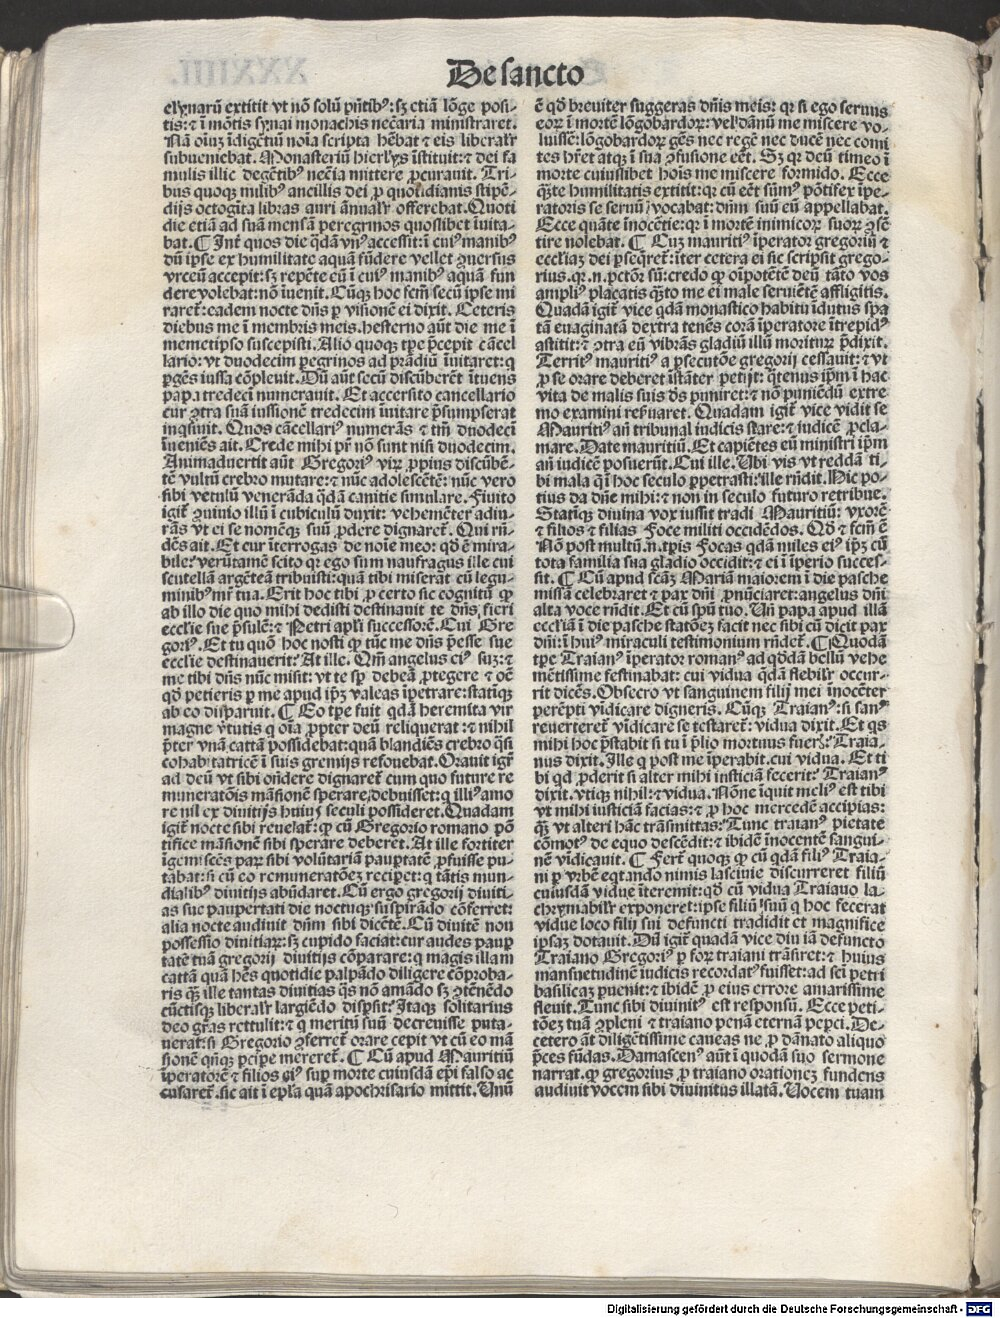 De sancto
elynarū extitit vt nō solū pñtibꝰ: sȝ etiā lōge posi-
tis: ⁊ ī mōtis synai monachis necc̄aria ministraret.
Nā oīuȝ īdigētiū noīa scripta hēbat ⁊ eis liberalr̄
subueniebat. Monasteriū hierl̄ys īstituit: ⁊ dei fa
mulis illic degētibꝰ nec̄ia mittere ꝓcurauit. Tri-
bus quoqȝ milibꝰ ancillis dei ꝓ quotidianis stipē-
dijs octogīta libras auri ānualr̄ offerebat. Quoti
die etiā ad suā mensā peregrinos quoslibet īuita-
bat. ¶ Int̄ quos die q̄dā vnꝰ accessit: ī cuiꝰ manibꝰ
dū ipse ex humilitate aquā fūdere vellet ꝯuersus
vrceū accepit: sȝ repēte eū ī cuiꝰ manibꝰ aquā fun
dere volebat: nō īuenit. Cūqȝ hoc scm̄ secū ipse mi
raret̄: eadem nocte dn̄s ꝑ visionē ei dixit. Ceteris
diebus me ī membris meis. hesterno aūt die me ī
memetipso suscepisti. Alio quoqȝ tꝑe p̄cepit cācel
lario: vt duodecim ꝑegrinos ad prādiū īuitaret: q
ꝑgēs iussa cōpleuit. Dū aūt secū discūberēt ītuens
papa tredeci numerauit. Et accersito cancellario
cur ꝯtra suā iussionē tredecim īuitare p̄sumpserat
inqsiuit. Quos cācellariꝰ numerās ⁊ tm̄ duodeci
īueniēs ait. Crede mihi pr̄ nō sunt nisi duodecim.
Animaduertit aūt Gregoriꝰ virȝ ꝓpius discūbē-
tē vultū crebro mutare: ⁊ nūc adolescētē: nūc vero
sibi vetulū venerāda q̄dā canitie simulare. Finito
igit̄ ꝯuiuio illū ī cubiculū duxit: vehemēter adiu-
rās vt ei se nomēqȝ suū ꝓdere dignaret̄. Qui rñ-
dēs ait. Et cur īterrogas de noīe meo: qd̄ ē mira-
bile: verūtamē scito qr ego sum naufragus ille cui
scutellā argēteā tribuisti: quā tibi miserat cū legu-
minibꝰ mr̄ tua. Erit hoc tibi ꝓ certo sic cognitū ꝙ
ab illo die quo mihi dedisti destinauit te dn̄s fieri
ecclīe sue p̄sulē: ⁊ Petri apl̄i successorē. Cui Gre
goriꝰ. Et tu quō hoc nosti ꝙ tūc me dn̄s p̄esse sue
ecclīe destinauerit: At ille. Qm̄ angelus eiꝰ suȝ: ⁊
me tibi dn̄s nūc misit: vt te sp̄ debeā ꝓtegere ⁊ oē
qd̄ petieris ꝑ me apud ip̄ȝ valeas īpetrare: statīqȝ
ab eo disparuit. ¶ Eo tꝑe fuit qdā heremita vir
magne v̄tutis q oīa ꝓpter deū reliquerat: ⁊ nihil
p̄ter vnā cattā possidebat: quā blandiēs crebro q̄si
cohabitatricē ī suis gremijs refouebat. Orauit igit̄
ad deū vt sibi on̄dere dignaret cum quo future re
muneratōis māsionē sperare debuisset: q illiꝰ amo
re nil ex diuitijs huiꝰ seculi possideret. Quadam
igit̄ nocte sibi reuelat̄: ꝙ cū Gregorio romano pō
tifice māsionē sibi sperare deberet. At ille fortiter
īgemiscēs parȝ sibi volūtariā pauꝑtatē ꝓfuisse pu-
tabat: si cū eo remuneratōeȝ reciꝑet: q tātis mun-
dialibꝰ diuitijs abūdaret. Cū ergo gregorij diuiti-
as sue paupertati die noctuqȝ suspirādo cōferret:
alia nocte audiuit dn̄m sibi dicētē. Cū diuitē non
possessio diuitiarȝ: sȝ cupido faciat: cur audes pauꝑ
tatē tuā gregorij diuitijs cōparare: q magis illam
cattā quā hēs quotidie palpādo diligere cōproba-
ris q̄ȝ ille tantas diuitias q̄s nō amādo sȝ ꝯtēnēdo
cūctisqȝ liberalr̄ largiēdo disp̄sit: Itaqȝ solitarius
deo gr̄as rettulit: ⁊ q meritū suū decreuisse puta-
uerat: si Gregorio ꝯferret̄ orare cepit vt cū eo mā
sionē qn̄qȝ ꝑcipe mereret̄. ¶ Cū apud Mauritiū
īperatorē ⁊ filios eiꝰ suꝑ morte cuiusdā ep̄i falso ac
cusaret̄. sic ait ī epl̄a quā apochrisario mittit. Unū
ē qd̄ breuiter suggeras dn̄is meis: qr si ego seruus
eorȝ ī mortē lōgobardorȝ: vel dānū me miscere vo-
luissē: lōgobardorȝ gēs nec regē nec ducē nec comi
tes hr̄et atqȝ ī sua ꝯfusione eēt. Sȝ qr deū timeo ī
morte cuiuslibet hoīs me miscere formido. Ecce
q̄te humilitatis extitit: qr cū eēt sūmꝰ pōtifex īpe-
ratoris se seruū vocabat: dn̄m suū eū appellabat.
Ecce quāte īnocētie: qr ī mortē inimicorȝ suorȝ ꝯsē
tire nolebat. ¶ Cuȝ mauritiꝰ īperator gregoriū ⁊
eccl̄iaȝ dei ꝑseqret̄: īter cetera ei sic scripsit grego-
rius. qr. n. pctōr sū: credo ꝙ oīpotētē deū tāto vos
ampliꝰ placatis q̄ȝto me ei male seruiētē affligitis.
Quadā igit̄ vice qdā monastico habitu īdutus spa
tā euaginatā dextra tenēs corā īperatore ītrepidꝰ
astitit: ⁊ ꝯtra eū vibrās gladiū illū moriturȝ p̄dixit.
Territꝰ mauritiꝰ a ꝑsecutōe gregorij cessauit: ⁊ vt
ꝓ se orare deberet īstāter petijt: q̄tenus ip̄m ī hac
vita de malis suis ds̄ puniret: ⁊ nō puniēdū extre
mo examini reẜuaret. Quadam igit̄ vice vidit se
Mauritiꝰ añ tribunal iudicis stare: ⁊ iudicē ꝓcla-
mare. Date mauritiū. Et capiētes eū ministri ip̄m
añ iudicē posuerūt. Cui ille. Ubi vis vt reddā ti-
bi mala q̄ ī hoc seculo ꝑpetrasti: ille rñdit. Hic po-
tius da dñe mihi: ⁊ non in seculo futuro retribue.
Statīqȝ diuina vox iussit tradi Mauritiū: vxorē
⁊ filios ⁊ filias Foce militi occidēdos. Qd̄ ⁊ fcm̄ ē
Nō post multū. n. tꝑis Focas qdā miles eiꝰ ip̄ȝ cū
tota familia sua gladio occidit: ⁊ ei ī īperio succes-
sit. ¶ Cū apud scāȝ Mariā maiorem ī die pasche
missā celebraret ⁊ pax dn̄i ꝓnūciaret: angelus dn̄i
alta voce rñdit. Et cū spū tuo. Uñ papa apud illā
eccl̄iā ī die pasche statōeȝ facit nec sibi cū dicit pax
dn̄i: ī huiꝰ miraculi testimonium rñdet̄. ¶ Quodā
tꝑe Traianꝰ īperator romanꝰ ad qd̄dā bellū vehe
mētissime festinabat: cui vidua q̄dā flebilr̄ occur-
rit dicēs. Obsecro vt sanguinem filij mei īnocēter
perēpti vidicare digneris. Cūqȝ Traianꝰ: si sanꝰ
reuerteret̄ vīdicare se testaret̄: vidua dixit. Et q̄s
mihi hoc p̄stabit si tu ī p̄lio mortuus fuerȝ: Traia-
nus dixit. Ille q post me īperabit. cui vidua. Et ti
bi qd ꝓderit si alter mihi iusticiā fecerit: Traianꝰ
dixit. vtiqȝ nihil: ⁊ vidua. Nōne īquit meliꝰ est tibi
vt mihi iusticiam facias: ⁊ ꝓ hoc mercedē accipias:
q̄ȝ vt alteri hāc trāsmittas: Tunc traianꝰ pietate
cōmotꝰ de equo descēdit: ⁊ ibidē īnocentē sangui-
nē vīdicauit. ¶ Fert̄ quoqȝ ꝙ cū qdā filiꝰ Traia-
ni ꝑ vrbē eqtando nimis lasciuie discurreret filiū
cuiusdā vidue īteremit: qd̄ cū vidua Traiano la-
chrymabilr̄ exponeret: ipse filiū suū q hoc fecerat
vidue loco filij sui defuncti tradidit et magnifice
ipsaȝ dotauit. Dū igit̄ quadā vice diu iā defuncto
Traiano Gregoriꝰ ꝑ forȝ traiani trāsiret: ⁊ huius
mansuetudinē iudicis recordatꝰ fuisset: ad scī petri
basilicaȝ ꝑuenit: ⁊ ibidē ꝓ eius errore amarissime
fleuit. Tunc sibi diuinitꝰ est responsū. Ecce peti-
tōeȝ tuā ꝯpleui ⁊ traiano penā eternā peꝑci. De-
cetero aūt diligētissime caueas ne ꝓ dānato aliquo
p̄ces fūdas. Damascenꝰ aūt ī quodā suo sermone
narrat. ꝙ gregorius ꝓ traiano orationeȝ fundens
audiuit vocem sibi diuinitus illatā. Uocem tuam
Digitalisierung gefördert durch die Deutsche Forschungsgemeinschaft - DFG